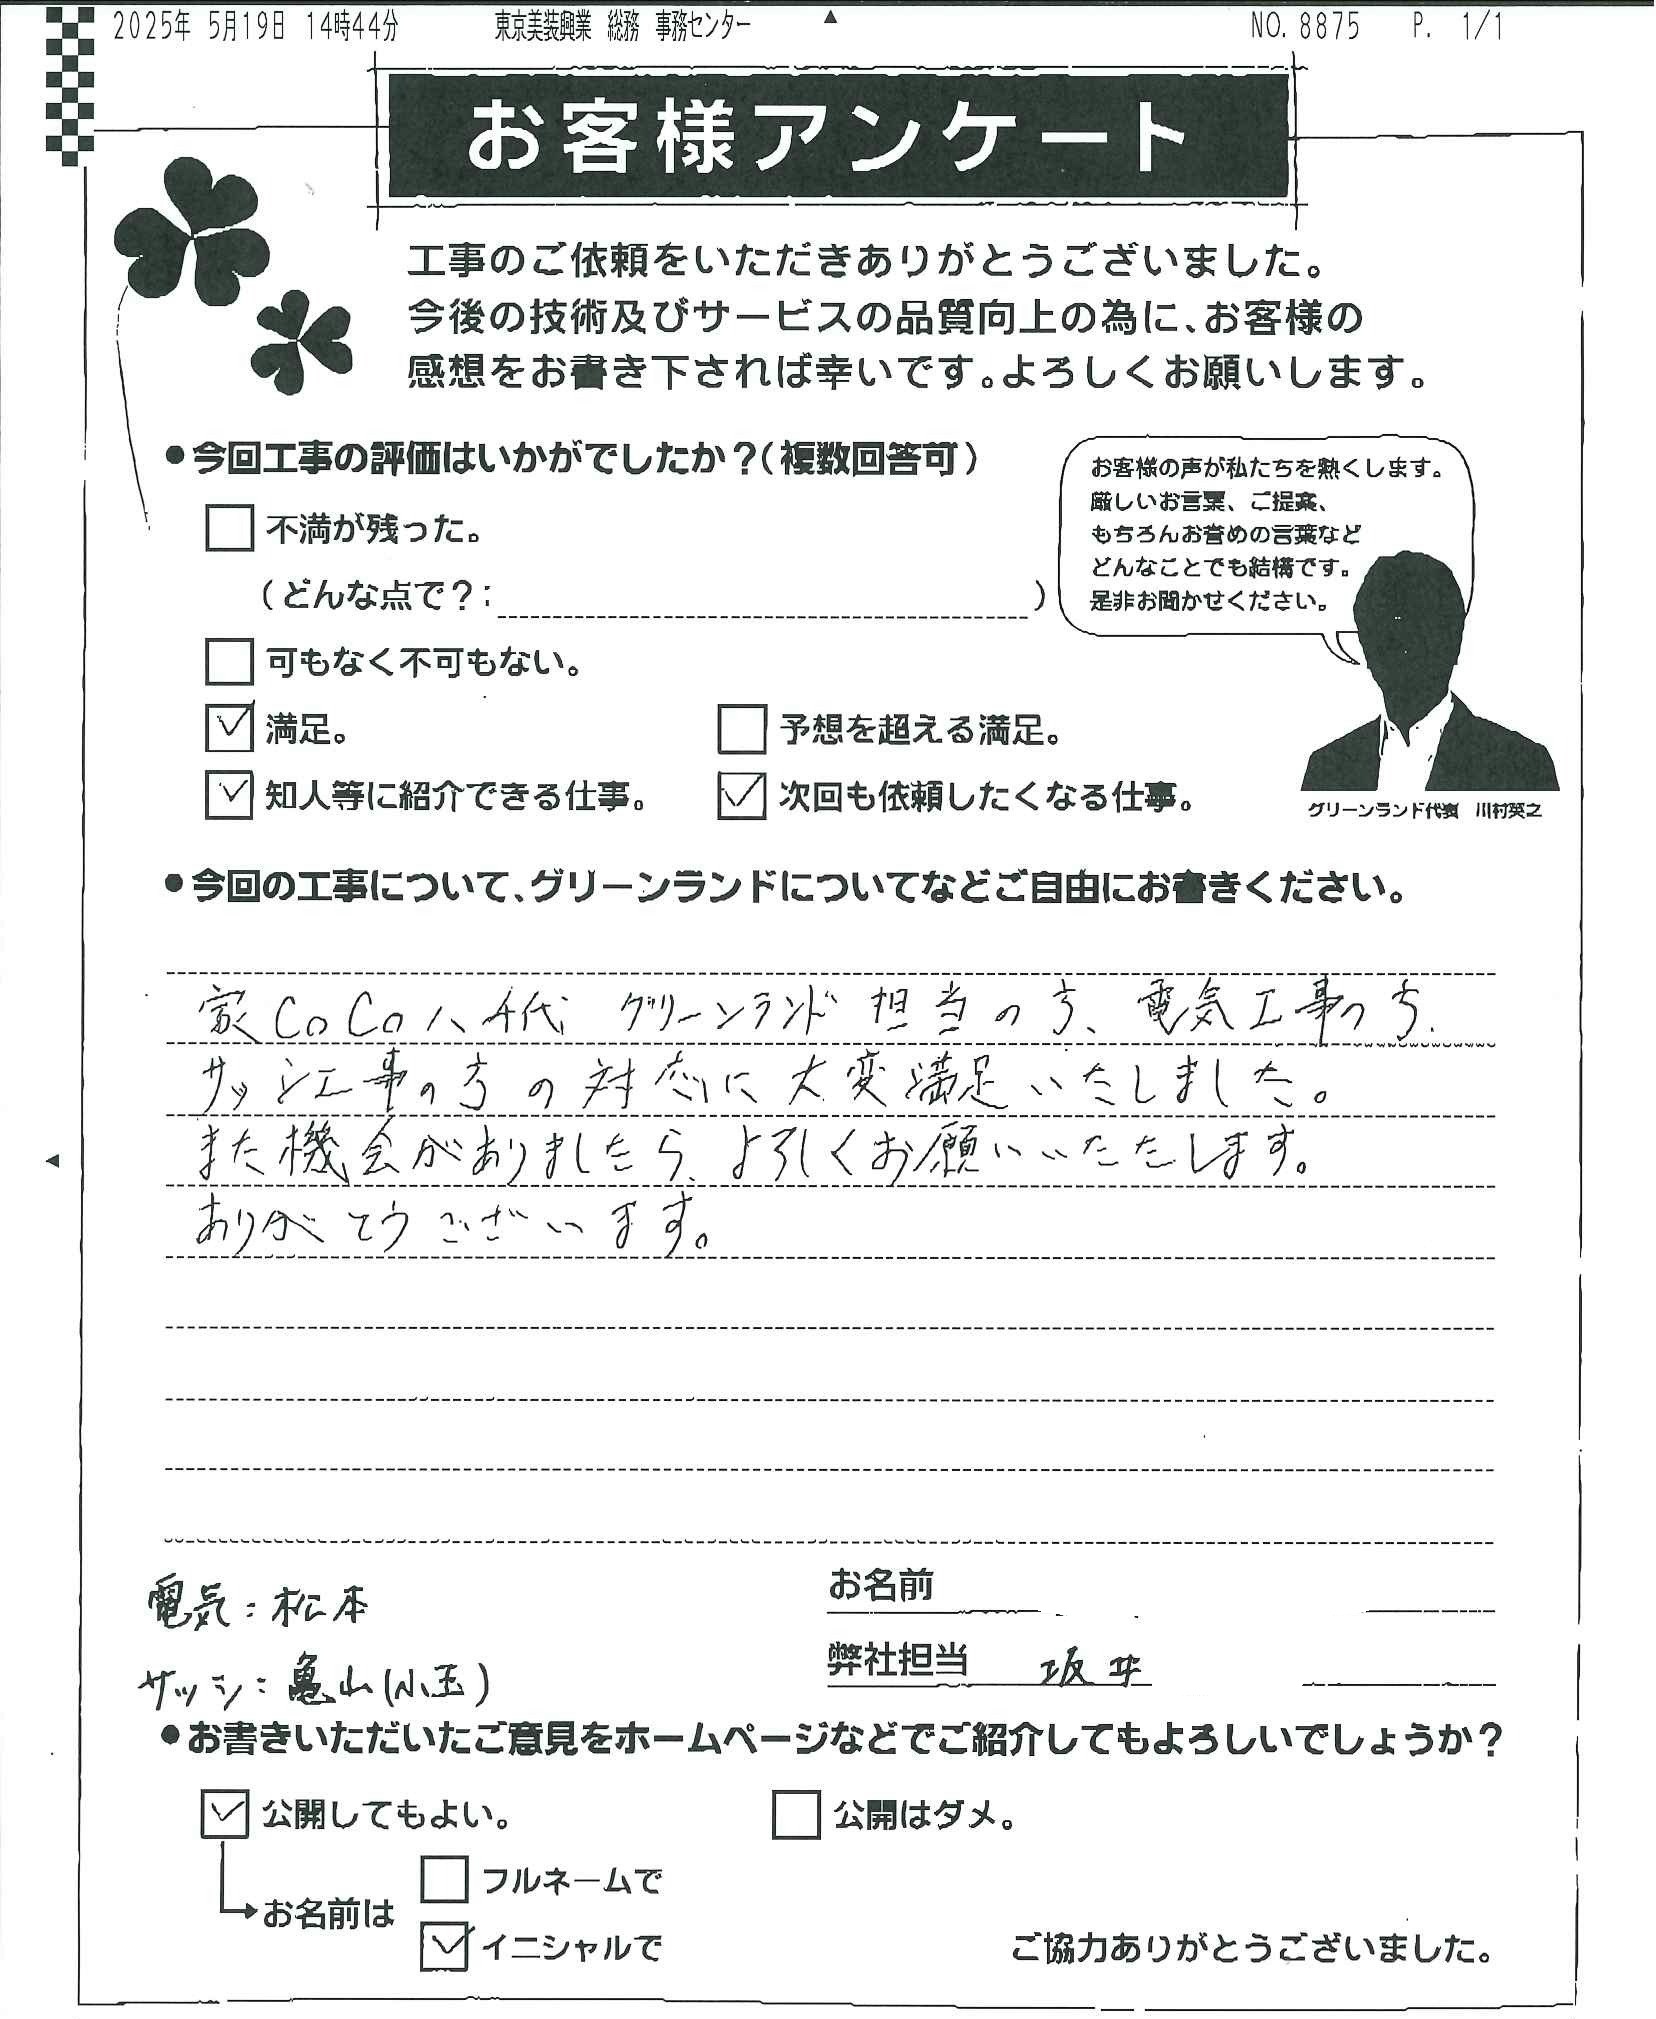 2025年 5月19日 14時44分 東京美装興業 総務 事務センター NO. 8875 P. 1/1
お客様アンケート
工事のご依頼をいただきありがとうございました。
今後の技術及びサービスの品質向上の為に、お客様の
感想をお書き下されば幸いです。よろしくお願いします。
●今回工事の評価はいかがでしたか？（複数回答可）
不満が残った。
（どんな点で？： ）
可もなく不可もない。
満足。 予想を超える満足。
知人等に紹介できる仕事。 次回も依頼したくなる仕事。
お客様の声が私たちを熱くします。
厳しいお言葉、ご提案、
もちろんお誉めの言葉など
どんなことでも結構です。
是非お聞かせください。
グリーンランド代表 川村英之
●今回の工事について、グリーンランドについてなどご自由にお書きください。
家CoCo八千代 グリーンランド 担当の方、電気工事の方、
サッシ工事の方の対応に大変満足いたしました。
また機会がありましたら、よろしくお願いいたたします。
ありがとうございます。
電気：松本
サッシ：亀山(小玉)
お名前
弊社担当 坂井
●お書きいただいたご意見をホームページなどでご紹介してもよろしいでしょうか？
公開してもよい。 公開はダメ。
お名前は
フルネームで
イニシャルで
ご協力ありがとうございました。